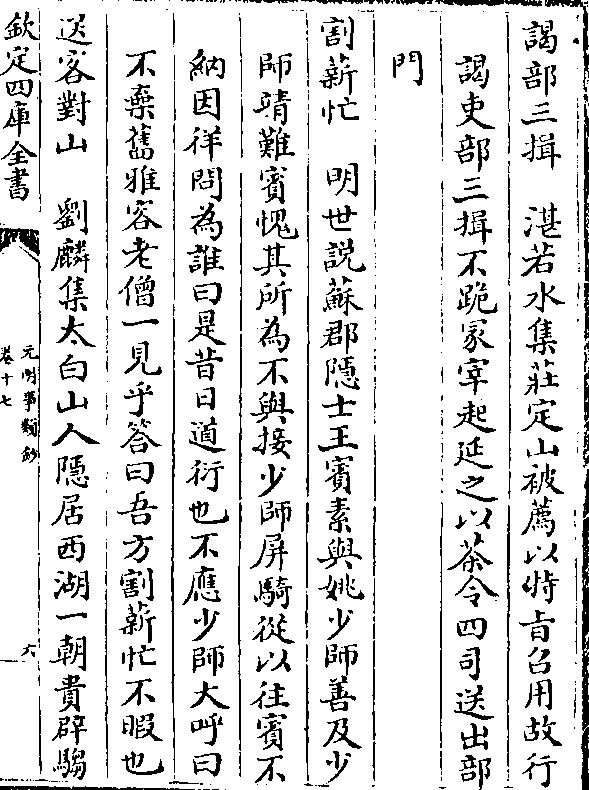 謁部三揖　湛若水集莊定山被薦以特旨召用故行
謁吏部三揖不跪冢宰起延之以茶令四司送出部
門
割薪忙　明世説蘇郡隱士王賓素與姚少師善及少
師靖難賓愧其所為不與接少師屏騎從以往賓不
納因徉問為誰曰是昔日道衍也不應少師大呼曰
不棄舊雅容老僧一見乎答曰吾方割薪忙不暇也
送客對山　劉麟集太白山人隱居西湖一朝貴辟騶
欽定四庫全書
元明事類鈔
卷十七
六